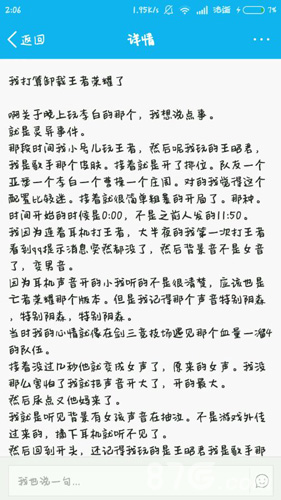 2:06
1.95K/s
7%
返回
详情
我打算卸载王者荣耀了
啊关于晚上玩李白的那个，我想说点事。
就是灵异事件。
那段时间我小号儿玩王者，然后呢我玩的王昭君，
我是歌手那个皮肤。接着就是开了排位。队友一个
亚瑟一个李白一个曹操一个庄周。对的我觉得这个
配置比较迷。接着就很简单粗暴的开局了。那种。
时间开始的时候是0:00，不是之前人发的11:50。
我因为连着耳机打王者，大半夜的我第一次打王者
看到qq提示消息突然都没了，然后背景音不是女音
了，变男音。
因为耳机声音开的小我听的不是很清楚，应该也是
亡者荣耀那个版本。但是我记得那个声音特别阴森
，特别阴森，特别阴森。
当时我的心情就像在剑三竞技场遇见那个血量一溜4
的队伍。
接着没过几秒他就变成女声了，原来的女声。我没
那么害怕了我就把声音开大了，开的最大。
然后尿点又他妈来了。
我就是听见背景有女孩声音在抽泣。不是游戏外传
过来的，摘下耳机就听不见了。
然后回到开头，还记得我玩的是王昭君我是歌手那
我也说一句...